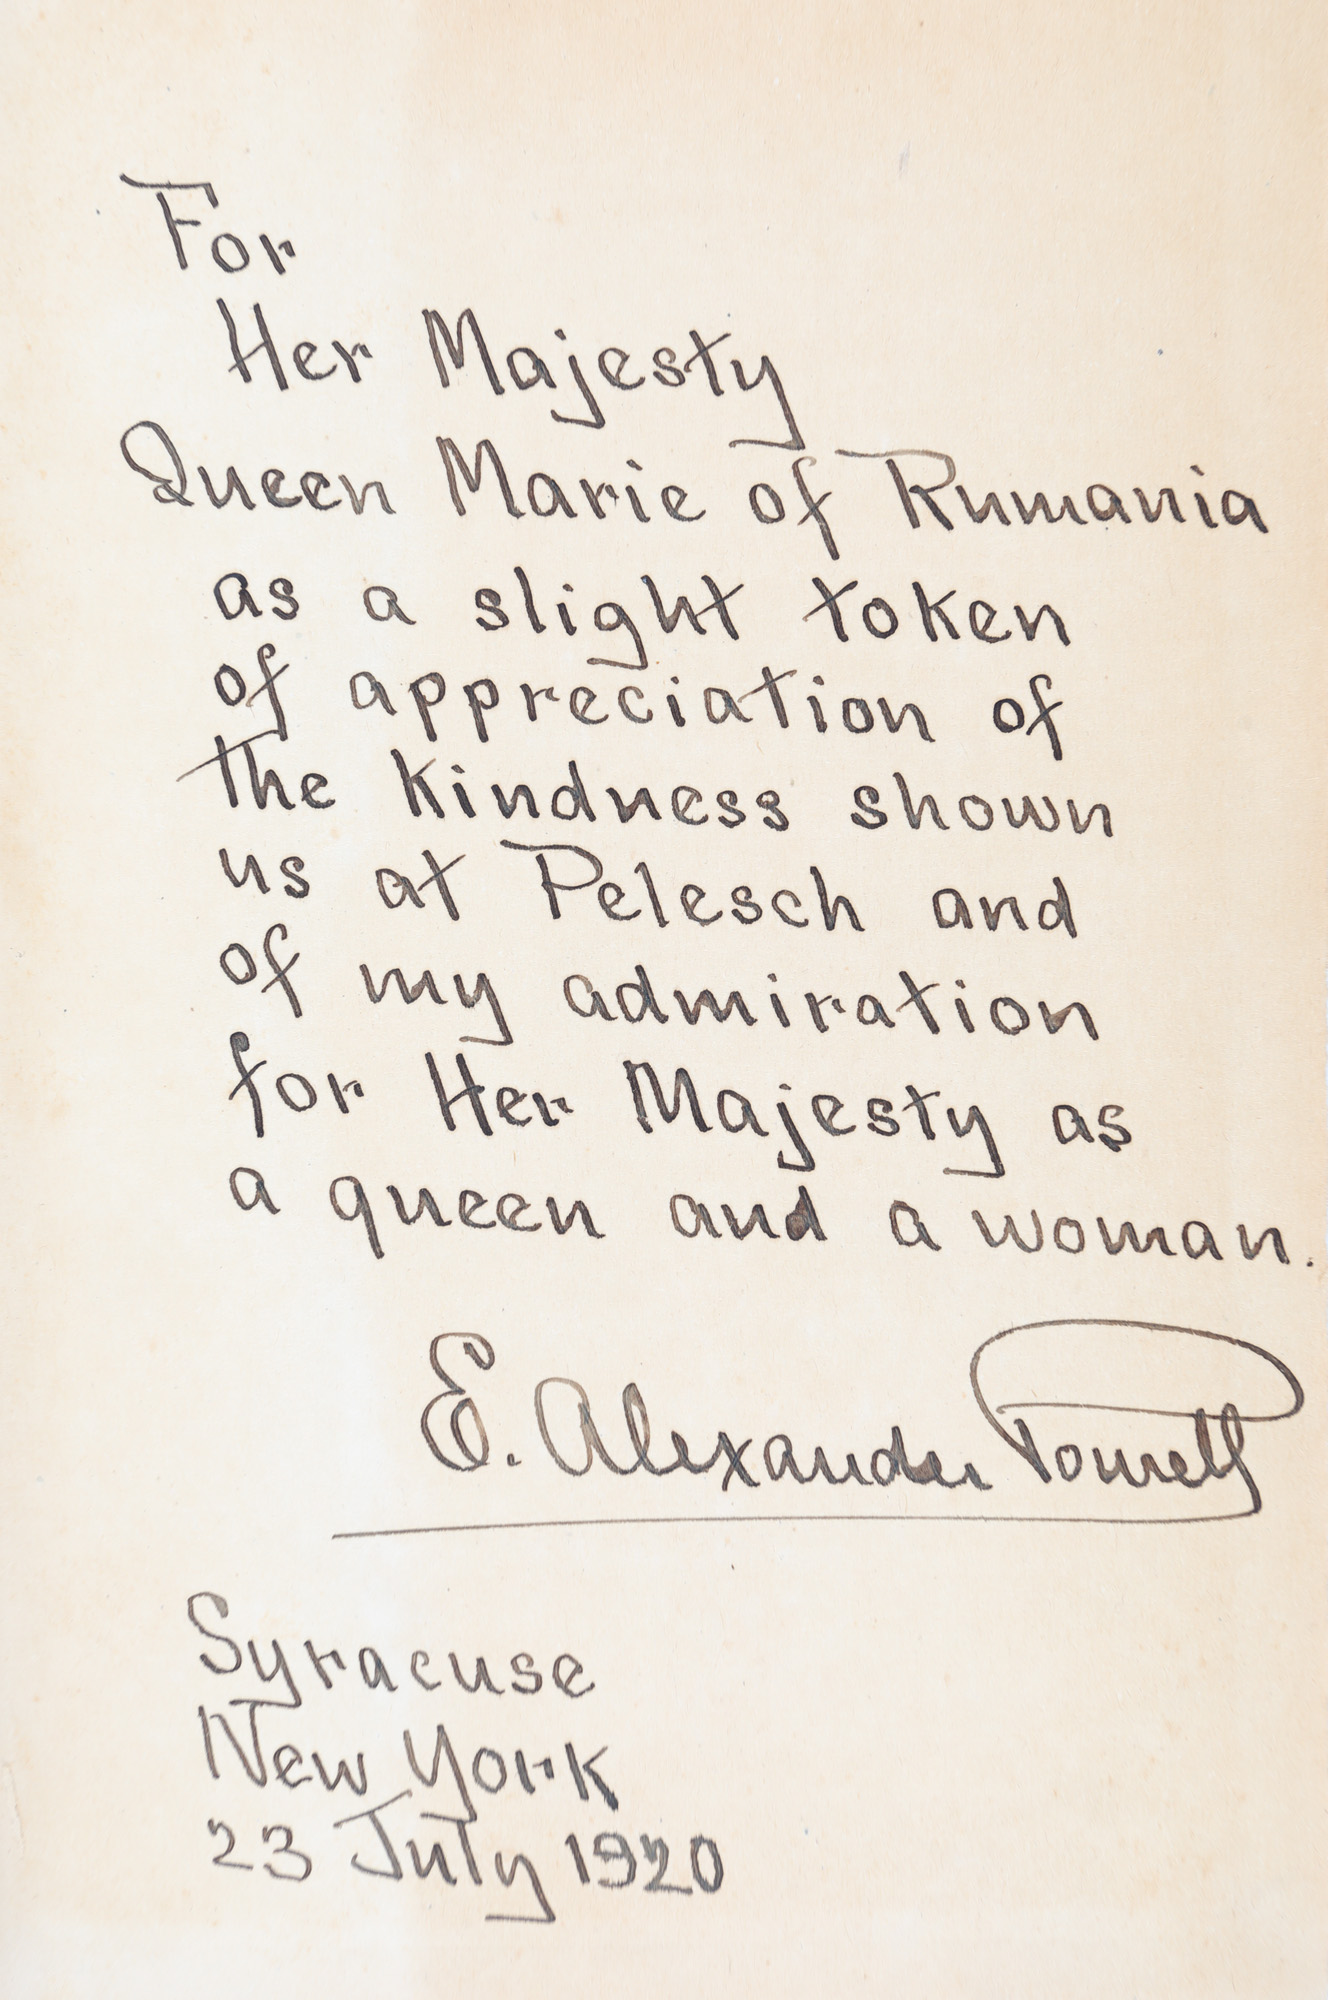 For
Her Majesty
Queen Marie of Rumania
as a slight token
of appreciation of
the kindness shown
us at Pelesch and
of my admiration
for Her Majesty as
a queen and a woman.
E. Alexander Powell
Syracuse
New York
23 July 1920